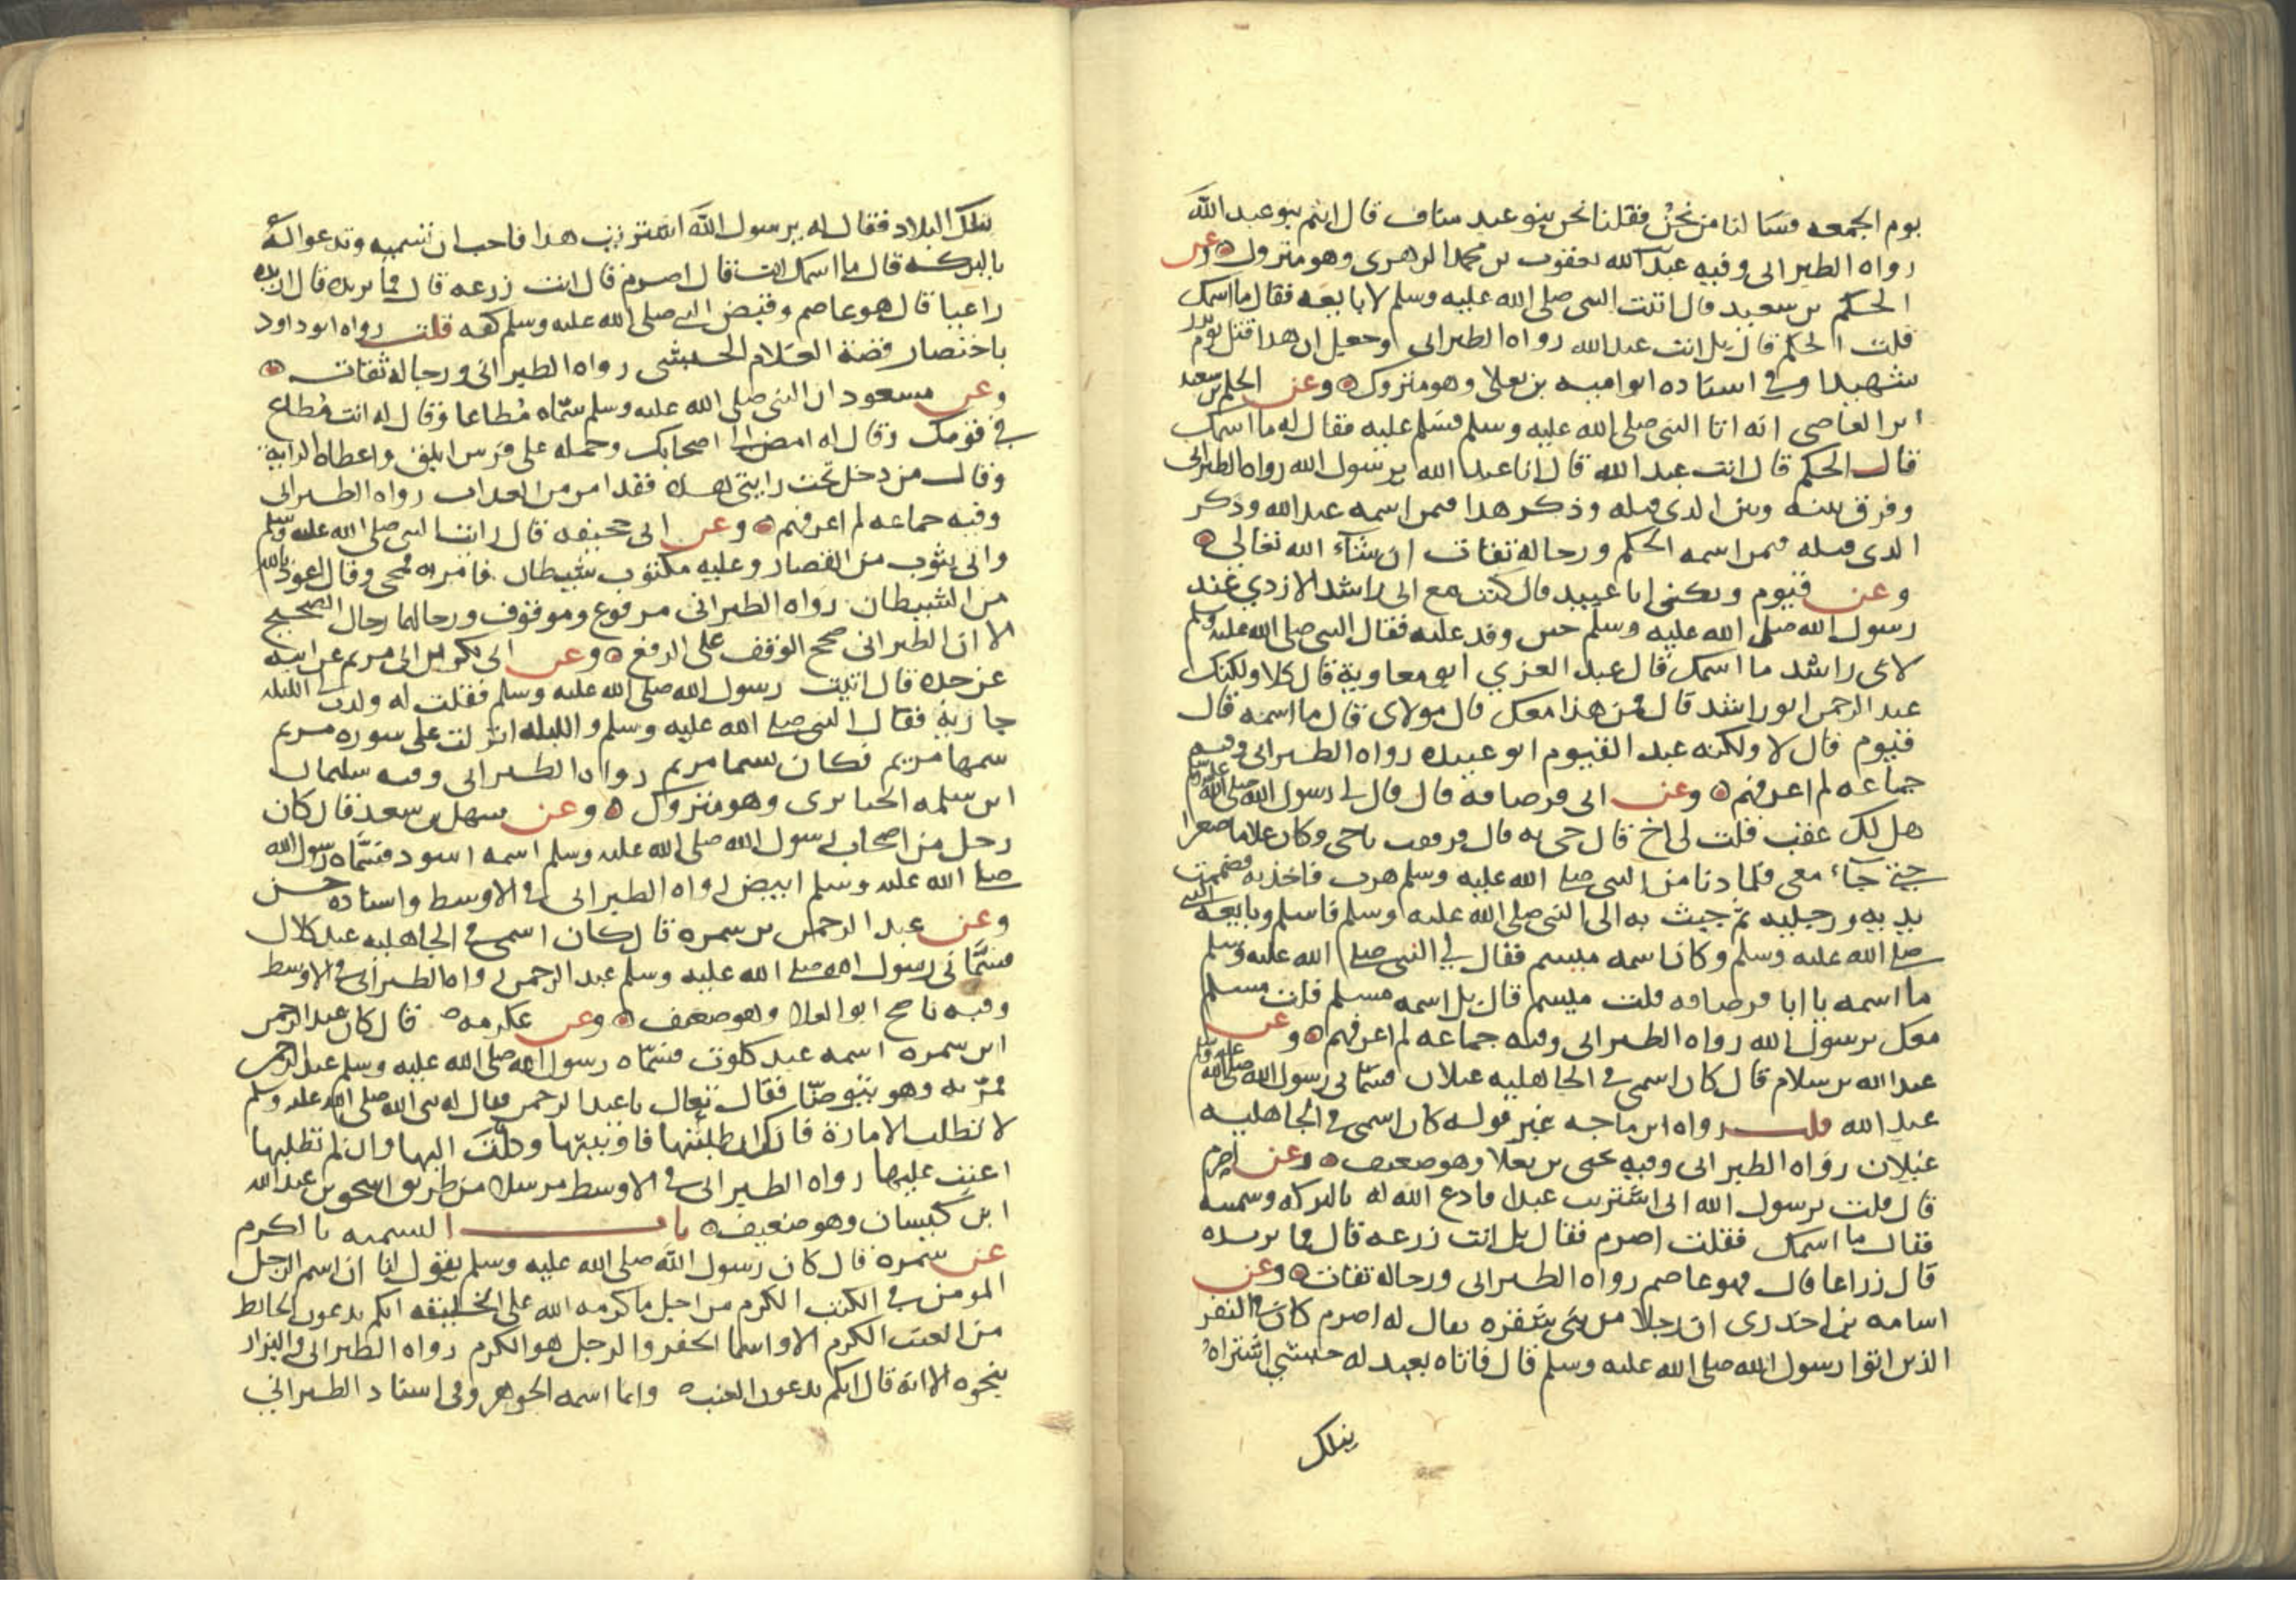 يوم الجمعه فسالنا من نحن فقلنا نحن بنو عبد مناف قال انتم بنو عبد الله
رواه الطبرانى وفيه عبد الله يعقوب بن محمد الزهرى وهو متروك وعن
الحكم بن سعيد قال اتيت النبى صلى الله عليه وسلم لابايعه فقال ما اسمك
قلت الحكم قال بل انت عبد الله رواه الطبرانى وجعل ان هدا قتل يوم بدر
شهيدا وفى اسناده ابو اميه بن يعلى وهو متروك وعن الحكم بن سعيد
ابن العاصى انه اتا النبى صلى الله عليه وسلم فسلم عليه فقال له ما اسمك
قال الحكم قال انت عبد الله قال انا عبد الله يرسول الله رواه الطبرانى
وفرق بينه وبين الدى قبله وذكر هدا فيمن اسمه عبد الله وذكر
الدى قبله فيمن اسمه الحكم ورجاله ثقات ان شاء الله تعالي
وعن قيوم ويكنى ابا عبيد قال كنت مع ابى راشد الازدي عند
رسول الله صلى الله عليه وسلم حين وفد عليه فقال النبى صلى الله عليه وسلم
لابى راشد ما اسمك قال عبد العزي ابو معاوية قال كلا ولكنك
عبد الرحمن ابو راشد قال فمن هذا معك قال مولاى قال ما اسمه قال
قيوم قال لا ولكنه عبد القيوم ابو عبيده رواه الطبرانى وفيه
جماعه لم اعرفهم وعن ابى قرصافه قال قال لى رسول الله صلى الله عليه وسلم
هل لك عقب قلت لى اخ قال جى به قال فرفعت باخى وكان غلاما صغيرا
حتى جاء معى فلما دنا من النبى صلى الله عليه وسلم هرب فاخذ به فضممت
يديه ورجليه ثم جيت به الى النبى صلى الله عليه وسلم فاسلم وبايعه النبى
صلى الله عليه وسلم وكان اسمه ميسم فقال لي النبى صلى الله عليه وسلم
ما اسمه يا ابا قرصافه قلت ميسم قال بل اسمه مسلم قلت مسلم
معك يرسول الله رواه الطبرانى وفيه جماعه لم اعرفهم وعن
عبد الله بن سلام قال كان اسمى فى الجاهليه غيلان فسمانى رسول الله صلى الله عليه وسلم
عبد الله قلت رواه ابن ماجه غير قوله كان اسمى فى الجاهليه
غيلان رواه الطبرانى وفيه يحيى بن يعلا وهو ضعيف وعن اصرم
قال قلت يرسول الله انى اشتريت عبدا فادع الله له بالبركه وسميه
فقال ما اسمك فقلت اصرم فقال بل انت زرعه قال فما تريده
قال زراعا قال فهو عاصم رواه الطبرانى ورجاله ثقات وعن
اسامه بن اخدرى ان رجلا من بنى شقره يقال له اصرم كان فى النفر
الذين اتوا رسول الله صلى الله عليه وسلم قال فاتاه بعبد له حبشي اشتراه
بتلك
بتلك البلاد فقال له يرسول الله اشتريت هدا فاحب ان تسميه وتدعوا له
بالبركه قال ما اسمك انت قال اصرم قال انت زرعه قال فما تريده قال اريده
راعيا قال هو عاصم وقبض النبى صلى الله عليه وسلم كفه قلت رواه ابو داود
باختصار قصة الغلام الحبشى رواه الطبرانى ورجاله ثقات
وعن مسعود ان النبى صلى الله عليه وسلم سماه مطاعا وقال له انت مطاع
في قومك وقال له امض الى اصحابك وحمله على فرس ابلق واعطاه الراية
وقال من دخل تحت رايتى هده فقد امن من العداب رواه الطبرانى
وفيه جماعه لم اعرفهم وعن ابى جحيفه قال اتيت النبى صلى الله عليه وسلم
واتى بثوب من القصار وعليه مكتوب شيطان فامر به فمحى وقال اعوذ بالله
من الشيطان رواه الطبرانى مرفوع وموقوف ورجالهما رجال الصحيح
الا ان الطبرانى صحح الوقف على الرفع وعن ابى بكر بن ابى مريم عن ابيه
عن جده قال اتيت رسول الله صلى الله عليه وسلم فقلت له ولدت لى الليله
جارية فقال النبى صلى الله عليه وسلم والليله انزلت على سوره مريم
سمها مريم فكان سما مريم رواه الطبرانى وفيه سليمان
ابن سلمه الخبايرى وهو متروك وعن سهل بن سعد قال كان
رجل من اصحاب رسول الله صلى الله عليه وسلم اسمه اسود فسماه رسول الله
صلى الله عليه وسلم ابيض رواه الطبرانى فى الاوسط واسناده حسن
وعن عبد الرحمن بن سمره قال كان اسمى فى الجاهليه عبد كلال
فسمانى رسول الله صلى الله عليه وسلم عبد الرحمن رواه الطبرانى فى الاوسط
وفيه ناصح ابو العلا وهو ضعيف وعن عكرمه قال كان عبد الرحمن
ابن سمره اسمه عبد كلوب فسماه رسول الله صلى الله عليه وسلم عبد الرحمن
فمر به وهو يتوضا فقال تعال يا عبد الرحمن فقال له نبى الله صلى الله عليه وسلم
لا تطلب الامارة فانك ان طلبتها فاوتيتها وكلت اليها وان لم تطلبها
اعنت عليها رواه الطبرانى فى الاوسط مرسلا من طريق اسحق بن عبد الله
ابن كيسان وهو ضعيف باب التسميه بالكرم
عن سمرة قال كان رسول الله صلى الله عليه وسلم يقول لنا ان اسم الرجل
المومن فى الكتب الكرم من اجل ما كرمه الله على الخليقه انكم تدعون الحايط
من العنب الكرم الا واسما الحفر والرجل هو الكرم رواه الطبرانى والبزار
بنحوه الا انه قال انكم تدعون العنبه وانما اسمه الجوهر وفى اسناد الطبرانى